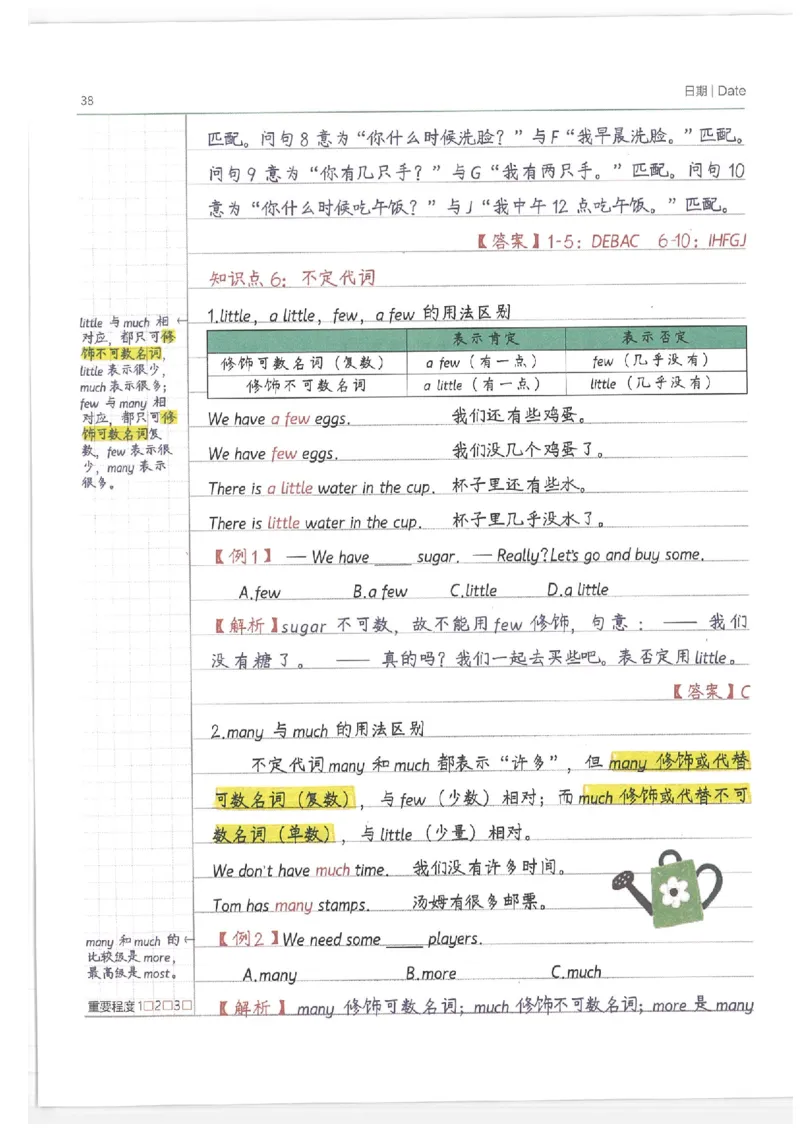 38
日期 | Date
匹配。问句 8 意为“你什么时候洗脸？”与F“我早晨洗脸。”匹配。
问句 9 意为“你有几只手？”与G“我有两只手。”匹配。问句 10
意为“你什么时候吃午饭？”与J“我中午 12 点吃午饭。”匹配。
【答案】1-5：DEBAC 6-10：IHFGJ
知识点 6：不定代词
1.little，a little，few，a few 的用法区别
little 与 much 相
对应，都只可修
饰不可数名词，
little 表示很少，
much 表示很多；
few 与 many 相
对应，都只可修
饰可数名词复
数，few 表示很
少，many 表示
很多。
表示肯定 表示否定
修饰可数名词（复数） a few（有一点） few（几乎没有）
修饰不可数名词 a little（有一点） little（几乎没有）
We have a few eggs. 我们还有些鸡蛋。
We have few eggs. 我们没几个鸡蛋了。
There is a little water in the cup. 杯子里还有些水。
There is little water in the cup. 杯子里几乎没水了。
【例1】 — We have ____ sugar. — Really? Let's go and buy some.
A.few B.a few C.little D.a little
【解析】sugar 不可数，故不能用 few 修饰，句意：—— 我们
没有糖了。 —— 真的吗？我们一起去买些吧。表否定用 little。
【答案】C
2.many 与 much 的用法区别
不定代词 many 和 much 都表示“许多”，但 many 修饰或代替
可数名词（复数），与 few（少数）相对；而 much 修饰或代替不可
数名词（单数），与 little（少量）相对。
We don't have much time. 我们没有许多时间。
Tom has many stamps. 汤姆有很多邮票。
many 和 much 的
比较级是 more，
最高级是 most。
【例2】We need some ____ players.
A.many B.more C.much
重要程度 1□2□3□
【解析】many 修饰可数名词；much 修饰不可数名词；more 是 many